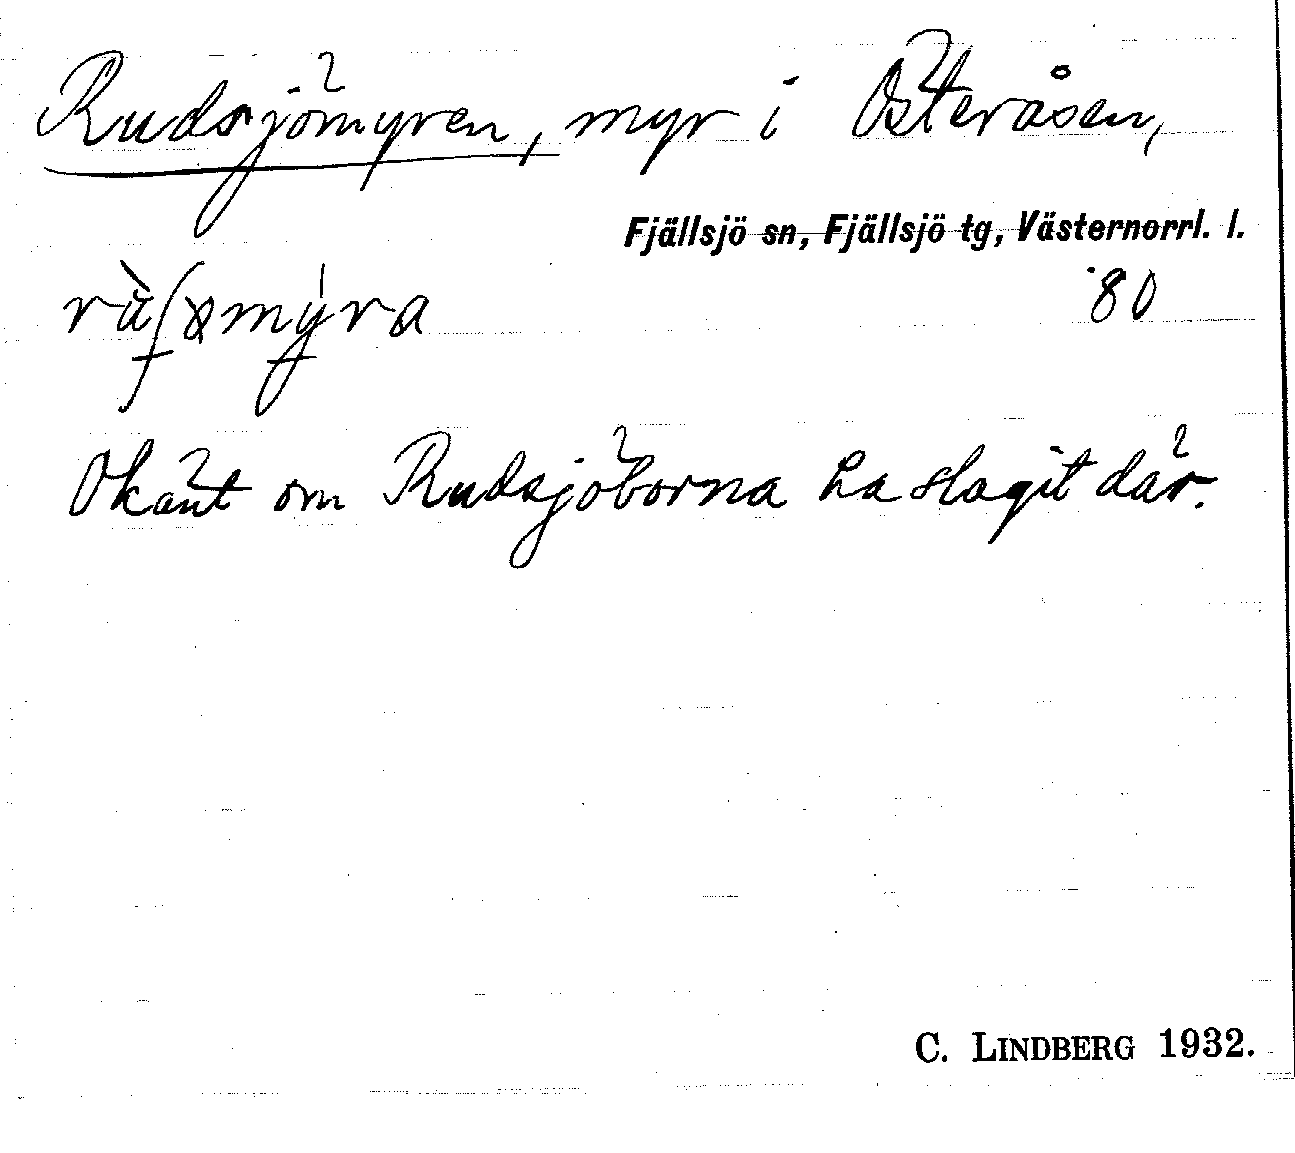 Rudsjömyren, myr i Österåsen,
Fjällsjö sn, Fjällsjö tg, Västernorrl. l.
80
Okänt om Rudsjöborna ha slagit där.
C. LINDBERG 1932.